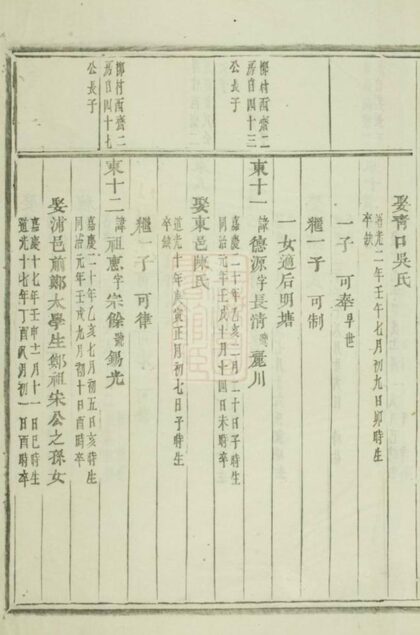 娶青口吳氏
道光二年壬午七月初九日卯時生
卒缺
一子 可奉早世
繼一子 可制
一女適后明塘
柳村酉齋二
房百四十三
公長子
東十一諱德源字長清號麗川
嘉慶二十年乙亥二月二十日子時生
同治元年壬戌十月十四日未時卒
娶東邑陳氏
道光十年庚寅正月初七日子時生
卒缺
繼一子 可律
柳村酉齋二
房百四十七
公長子
東十二諱祖惠字宗餘號錫光
嘉慶二十年乙亥七月初五日亥時生
同治元年壬戌九月初十日酉時卒
娶浦邑前鄭太學生鄭祖宋公之孫女
嘉慶十七年壬申十二月十一日巳時生
道光十七年丁酉八月初一日酉時卒